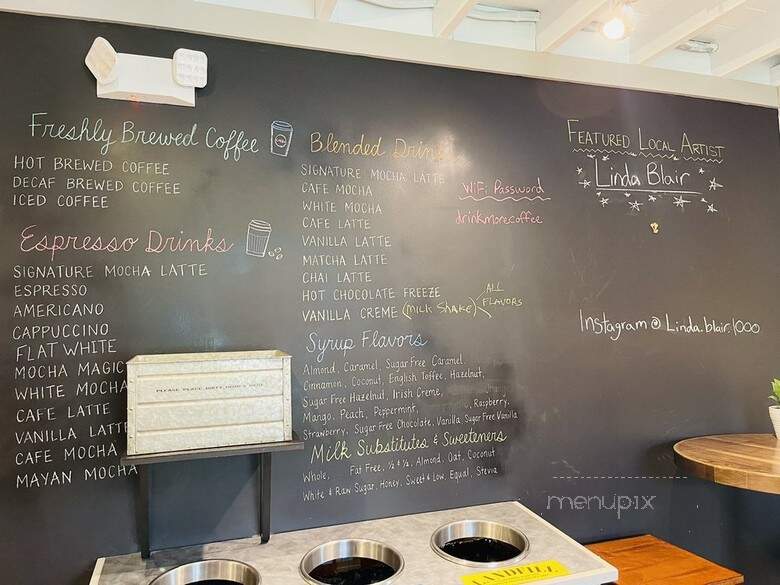 Freshly Brewed Coffee
HOT BREWED COFFEE
DECAF BREWED COFFEE
ICED COFFEE
Espresso Drinks
SIGNATURE MOCHA LATTE
ESPRESSO
AMERICANO
CAPPUCCINO
FLAT WHITE
MOCHA MAGIC
WHITE MOCHA
CAFE LATTE
VANILLA LATTE
CAFE MOCHA
MAYAN MOCHA
PLEASE PLACE DIRTY DISHES HERE
Blended Drinks
SIGNATURE MOCHA LATTE
CAFE MOCHA
WHITE MOCHA
CAFE LATTE
VANILLA LATTE
MATCHA LATTE
CHAI LATTE
HOT CHOCOLATE FREEZE
VANILLA CREME (MILK SHAKE) ALL
FLAVORS
Syrup Flavors
Almond, Caramel, Sugar Free Caramel,
Cinnamon, Coconut, English Toffee, Hazelnut,
Sugar Free Hazelnut, Irish Creme,
Mango, Peach, Peppermint, Raspberry,
Strawberry, Sugar Free Chocolate, Vanilla, Sugar Free Vanilla
Milk Substitutes & Sweeteners
Whole, Fat Free, ½ & ½, Almond, Oat, Coconut
White & Raw Sugar, Honey, Sweet & Low, Equal, Stevia
WiFi Password
drinkmorecoffee
FEATURED LOCAL ARTIST
Linda Blair
Instagram @ Linda.blair.1000
LANDFILL
menupix